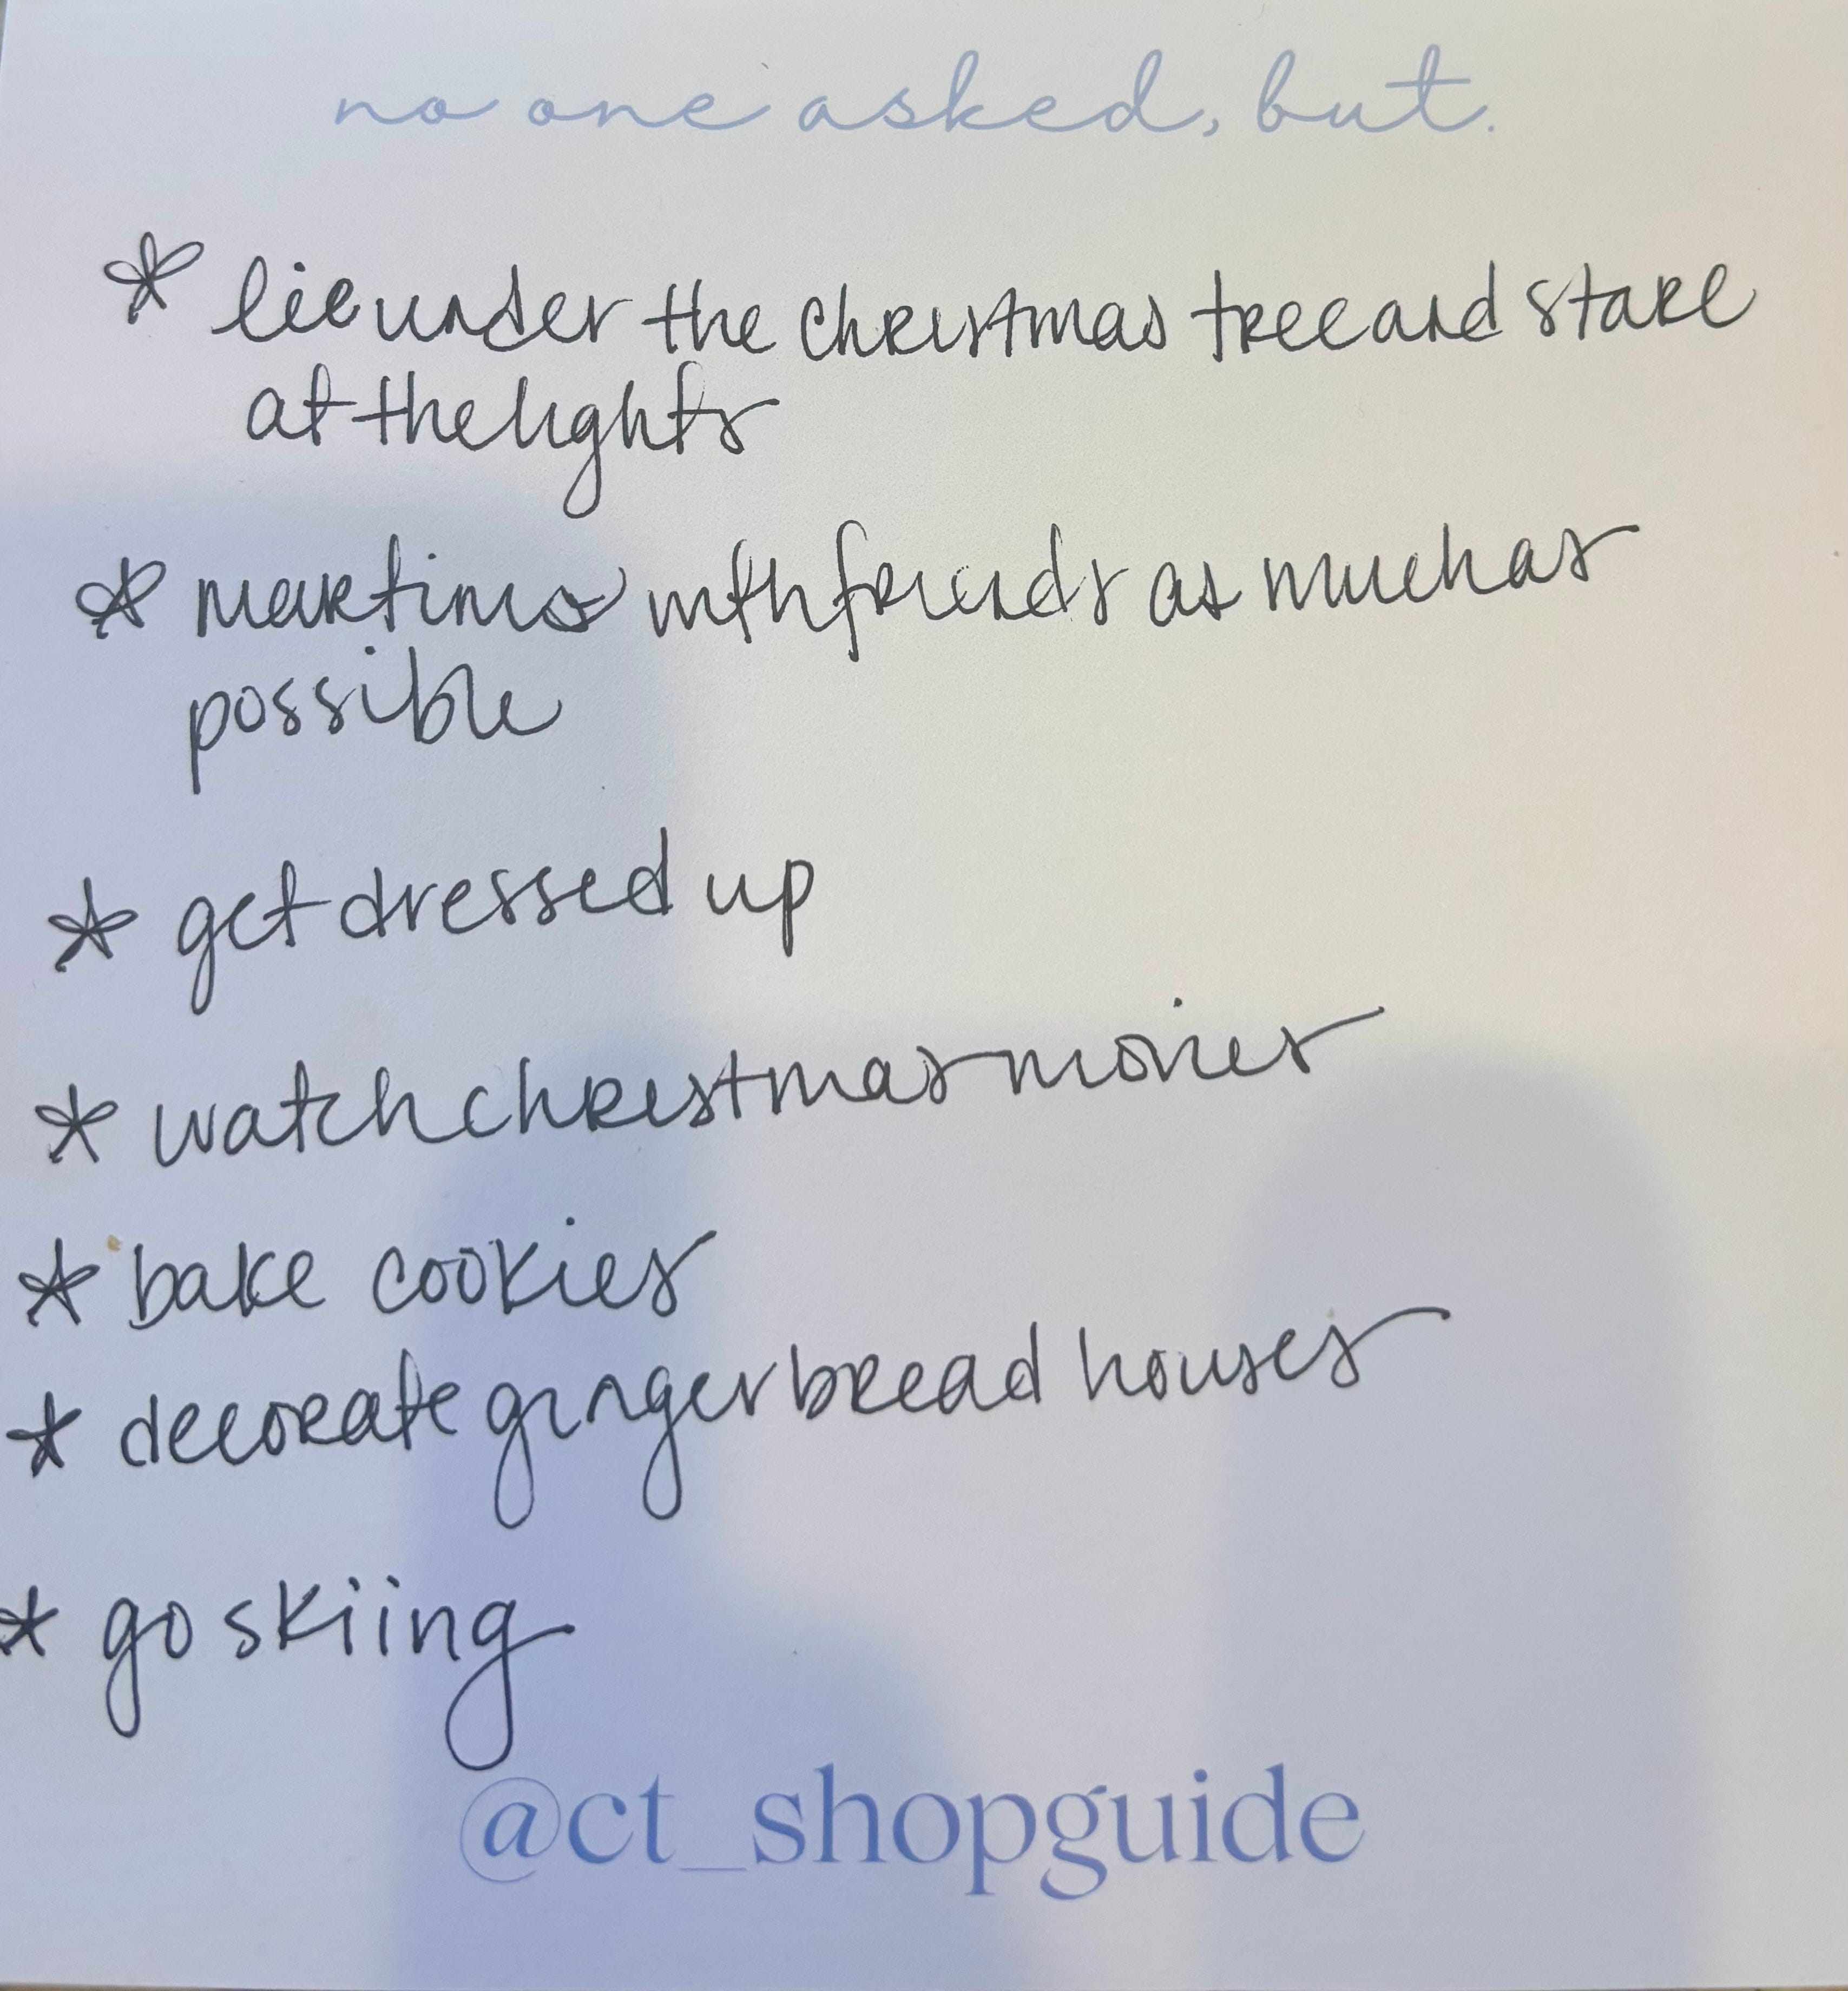 no one asked, but.
* lie under the christmas tree and stare
at the lights
* martinis with friends as much as
possible
* get dressed up
* watch christmas movies
* bake cookies
* decorate gingerbread houses
* go skiing
@ct_shopguide